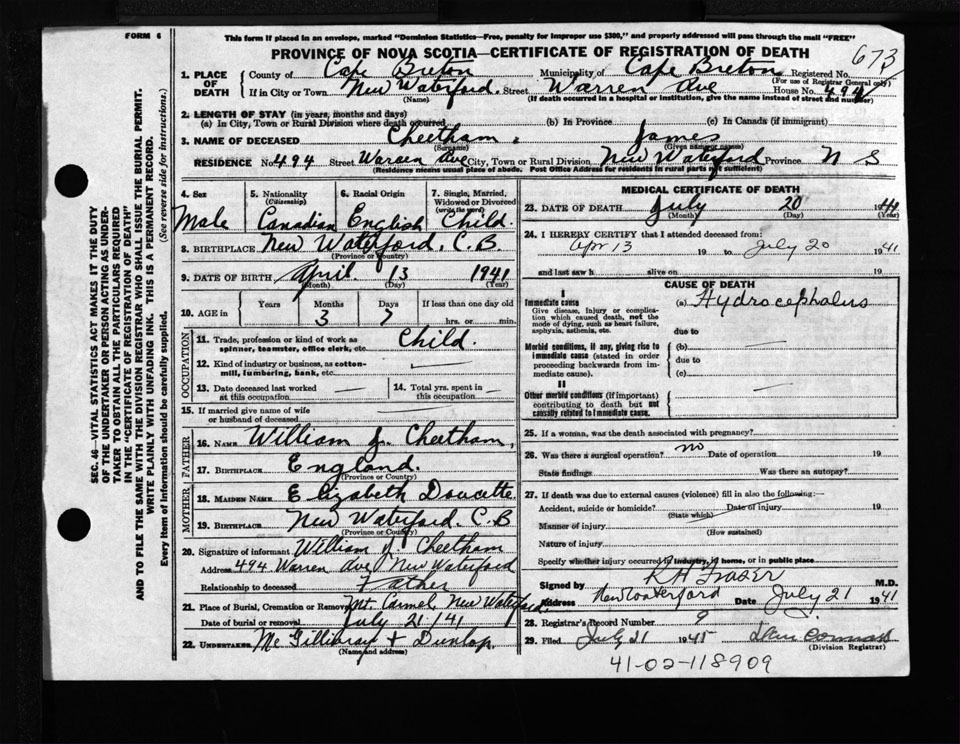 FORM 6
This form if placed in an envelope, marked "Dominion Statistics—Free, penalty for improper use $300," and properly addressed will pass through the mail "FREE"
PROVINCE OF NOVA SCOTIA—CERTIFICATE OF REGISTRATION OF DEATH
673
1. PLACE OF DEATH
County of Cape Breton Municipality of Cape Breton Registered No.
(For use of Registrar General only)
If in City or Town New Waterford. Street Warren Ave House No. 494
(Name) (If death occurred in a hospital or institution, give the name instead of street and number)
2. LENGTH OF STAY (in years, months and days)
(a) In City, Town or Rural Division where death occurred (b) In Province (c) In Canada (if immigrant)
3. NAME OF DECEASED Cheetham, James
(Surname) (Given name or names)
RESIDENCE No. 494 Street Warren Ave City, Town or Rural Division New Waterford Province N S
(Residence means usual place of abode. Post Office Address for residents in rural parts not sufficient)
4. Sex Male
5. Nationality (Citizenship) Canadian
6. Racial Origin English
7. Single, Married, Widowed or Divorced (write the word) Child.
8. BIRTHPLACE New Waterford, C.B.
(Province or Country)
9. DATE OF BIRTH April 13 1941
(Month) (Day) (Year)
10. AGE in Years Months 3 Days 7 If less than one day old hrs. or min.
OCCUPATION
11. Trade, profession or kind of work as spinner, teamster, office clerk, etc. Child.
12. Kind of industry or business, as cotton-mill, lumbering, bank, etc.
13. Date deceased last worked at this occupation
14. Total yrs. spent in this occupation
15. If married give name of wife or husband of deceased
FATHER
16. NAME William J. Cheetham,
17. BIRTHPLACE England.
MOTHER
18. MAIDEN NAME Elizabeth Doucette
19. BIRTHPLACE New Waterford, C.B
(Province or Country)
20. Signature of informant William J. Cheetham
Address 494 Warren Ave New Waterford
Relationship to deceased Father
21. Place of Burial, Cremation or Removal Mt. Carmel, New Waterford
Date of burial or removal July 21/41
22. UNDERTAKER Mc Gillivray + Dunlop
(Name and address)
MEDICAL CERTIFICATE OF DEATH
23. DATE OF DEATH July 20 1941
(Month) (Day) (Year)
24. I HEREBY CERTIFY that I attended deceased from:
Apr 13 19 to July 20 1941
and last saw h alive on 19
CAUSE OF DEATH
I
Immediate cause
Give disease, injury or complication which caused death, not the mode of dying, such as heart failure, asphyxia, asthenia, etc.
(a) Hydrocephalus
due to
Morbid conditions, if any, giving rise to immediate cause (stated in order proceeding backwards from immediate cause).
(b)
due to
(c)
II
Other morbid conditions (if important) contributing to death but not causally related to immediate cause.
25. If a woman, was the death associated with pregnancy?
26. Was there a surgical operation? no Date of operation 19
State findings Was there an autopsy?
27. If death was due to external causes (violence) fill in also the following:—
Accident, suicide or homicide? Date of injury 19
(State which)
Manner of injury
(How sustained)
Nature of injury
Specify whether injury occurred in industry, in home, or in public place
Signed by R H Fraser M.D.
Address New Waterford Date July 21 1941
28. Registrar's Record Number 9
29. Filed July 21 194
(Division Registrar)
41-02-118909
SEC. 46—VITAL STATISTICS ACT MAKES IT THE DUTY
OF THE UNDERTAKER OR PERSON ACTING AS UNDER-
TAKER TO OBTAIN ALL THE PARTICULARS REQUIRED
IN THE "CERTIFICATE OF REGISTRATION OF DEATH"
AND TO FILE THE SAME WITH THE DIVISION REGISTRAR WHO SHALL ISSUE THE BURIAL PERMIT.
WRITE PLAINLY WITH UNFADING INK. THIS IS A PERMANENT RECORD.
Every item of Information should be carefully supplied. (See reverse side for instructions.)